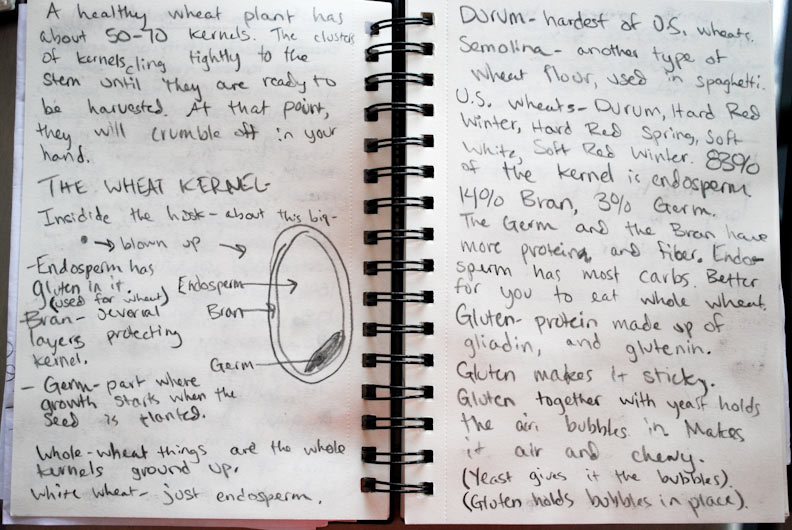 A healthy wheat plant has
about 50-70 kernels. The clusters
of kernels cling tightly to the
stem until they are ready to
be harvested. At that point,
they will crumble off in your
hand.
THE WHEAT KERNEL
Insidide the husk - about this big -
→ blown up →
- Endosperm has
gluten in it.
(used for wheat)
Endosperm
Bran
- Bran - several
layers protecting
kernel.
Germ
- Germ - part where
growth starts when the
seed is planted.
Whole-wheat things are the whole
kernels ground up.
White wheat - just endosperm.
Durum - hardest of U.S. wheats.
Semolina - another type of
wheat flour, used in spaghetti.
U.S. wheats - Durum, Hard Red
Winter, Hard Red Spring, Soft
White, Soft Red Winter. 83%
of the kernel is endosperm
14% Bran, 3% Germ.
The Germ and the Bran have
more protein, and fiber. Endo-
sperm has most carbs. Better
for you to eat whole wheat.
Gluten - protein made up of
gliadin, and glutenin.
Gluten makes it sticky.
Gluten together with yeast holds
the air bubbles in. Makes
it air and chewy.
(Yeast gives it the bubbles).
(Gluten holds bubbles in place).